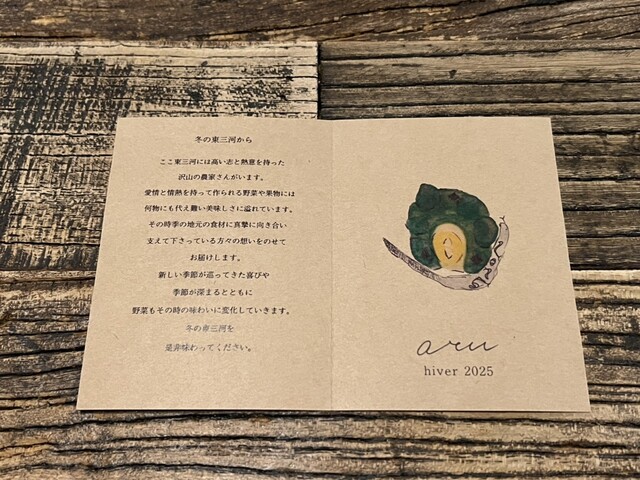 冬の東三河から
ここ東三河には高い志と熱意を持った
沢山の農家さんがいます。
愛情と情熱を持って作られる野菜や果物には
何物にも代え難い美味しさに溢れています。
その時季の地元の食材に真摯に向き合い
支えて下さっている方々の想いをのせて
お届けします。
新しい季節が巡ってきた喜びや
季節が深まるとともに
野菜もその時の味わいに変化していきます。
冬の東三河を
是非味わってください。
2025
aru
hiver 2025